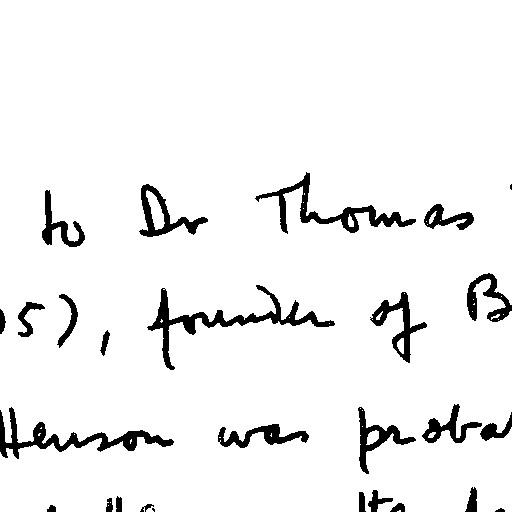 to Dr Thomas
05), founder of B
Henson was proba